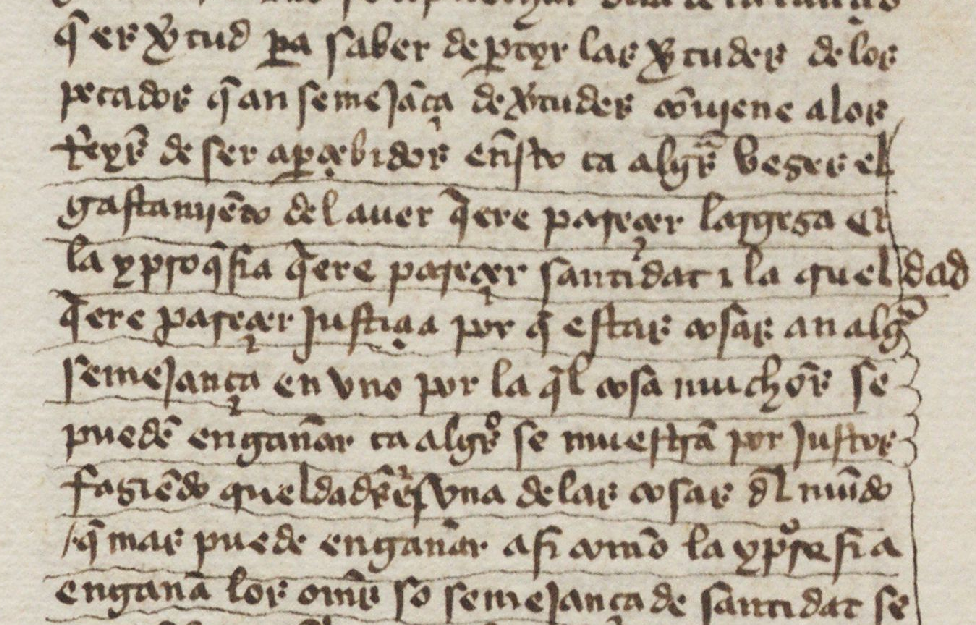 q̄ es v̓tud ꝑa saber deꝑtyr las v̓tudes de los
pecados q̄ an semeJāça de v̓tudes cōviene a los
Reyes de ser aꝑçebidos en̄sto ca algūs veses el
gastamyēto del aver q̄ere paresçer largesa et
la ypsoq̄sia q̄ere paresçer santidat ⁊ la queldad
q̄ere paresçer Justiçia por q̄ estas cosas an algā
semeJança en vno por la q̄l cosa muchos̄ se
puedē engañar ca algūos se muestrā por Justos
fasiēdo queldades vna delas cosas dl̄ mūdo
q̄ mas puede engañar asi com̄o la ypocresia
engañā los oms̄ so semeJança de santidat se